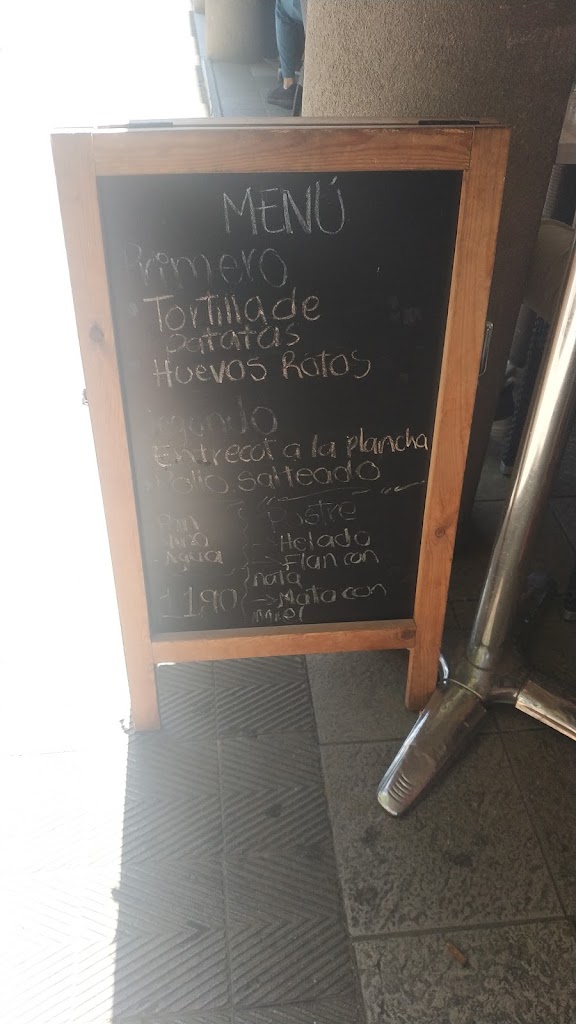 MENÚ
Primero
Tortilla de
patatas
Huevos Rotos
Segundo
Entrecot a la plancha
Pollo salteado
Pan
Vino
Agua
11,90
Postre
→ Helado
→ Flan con
nata
→ Mato con
miel